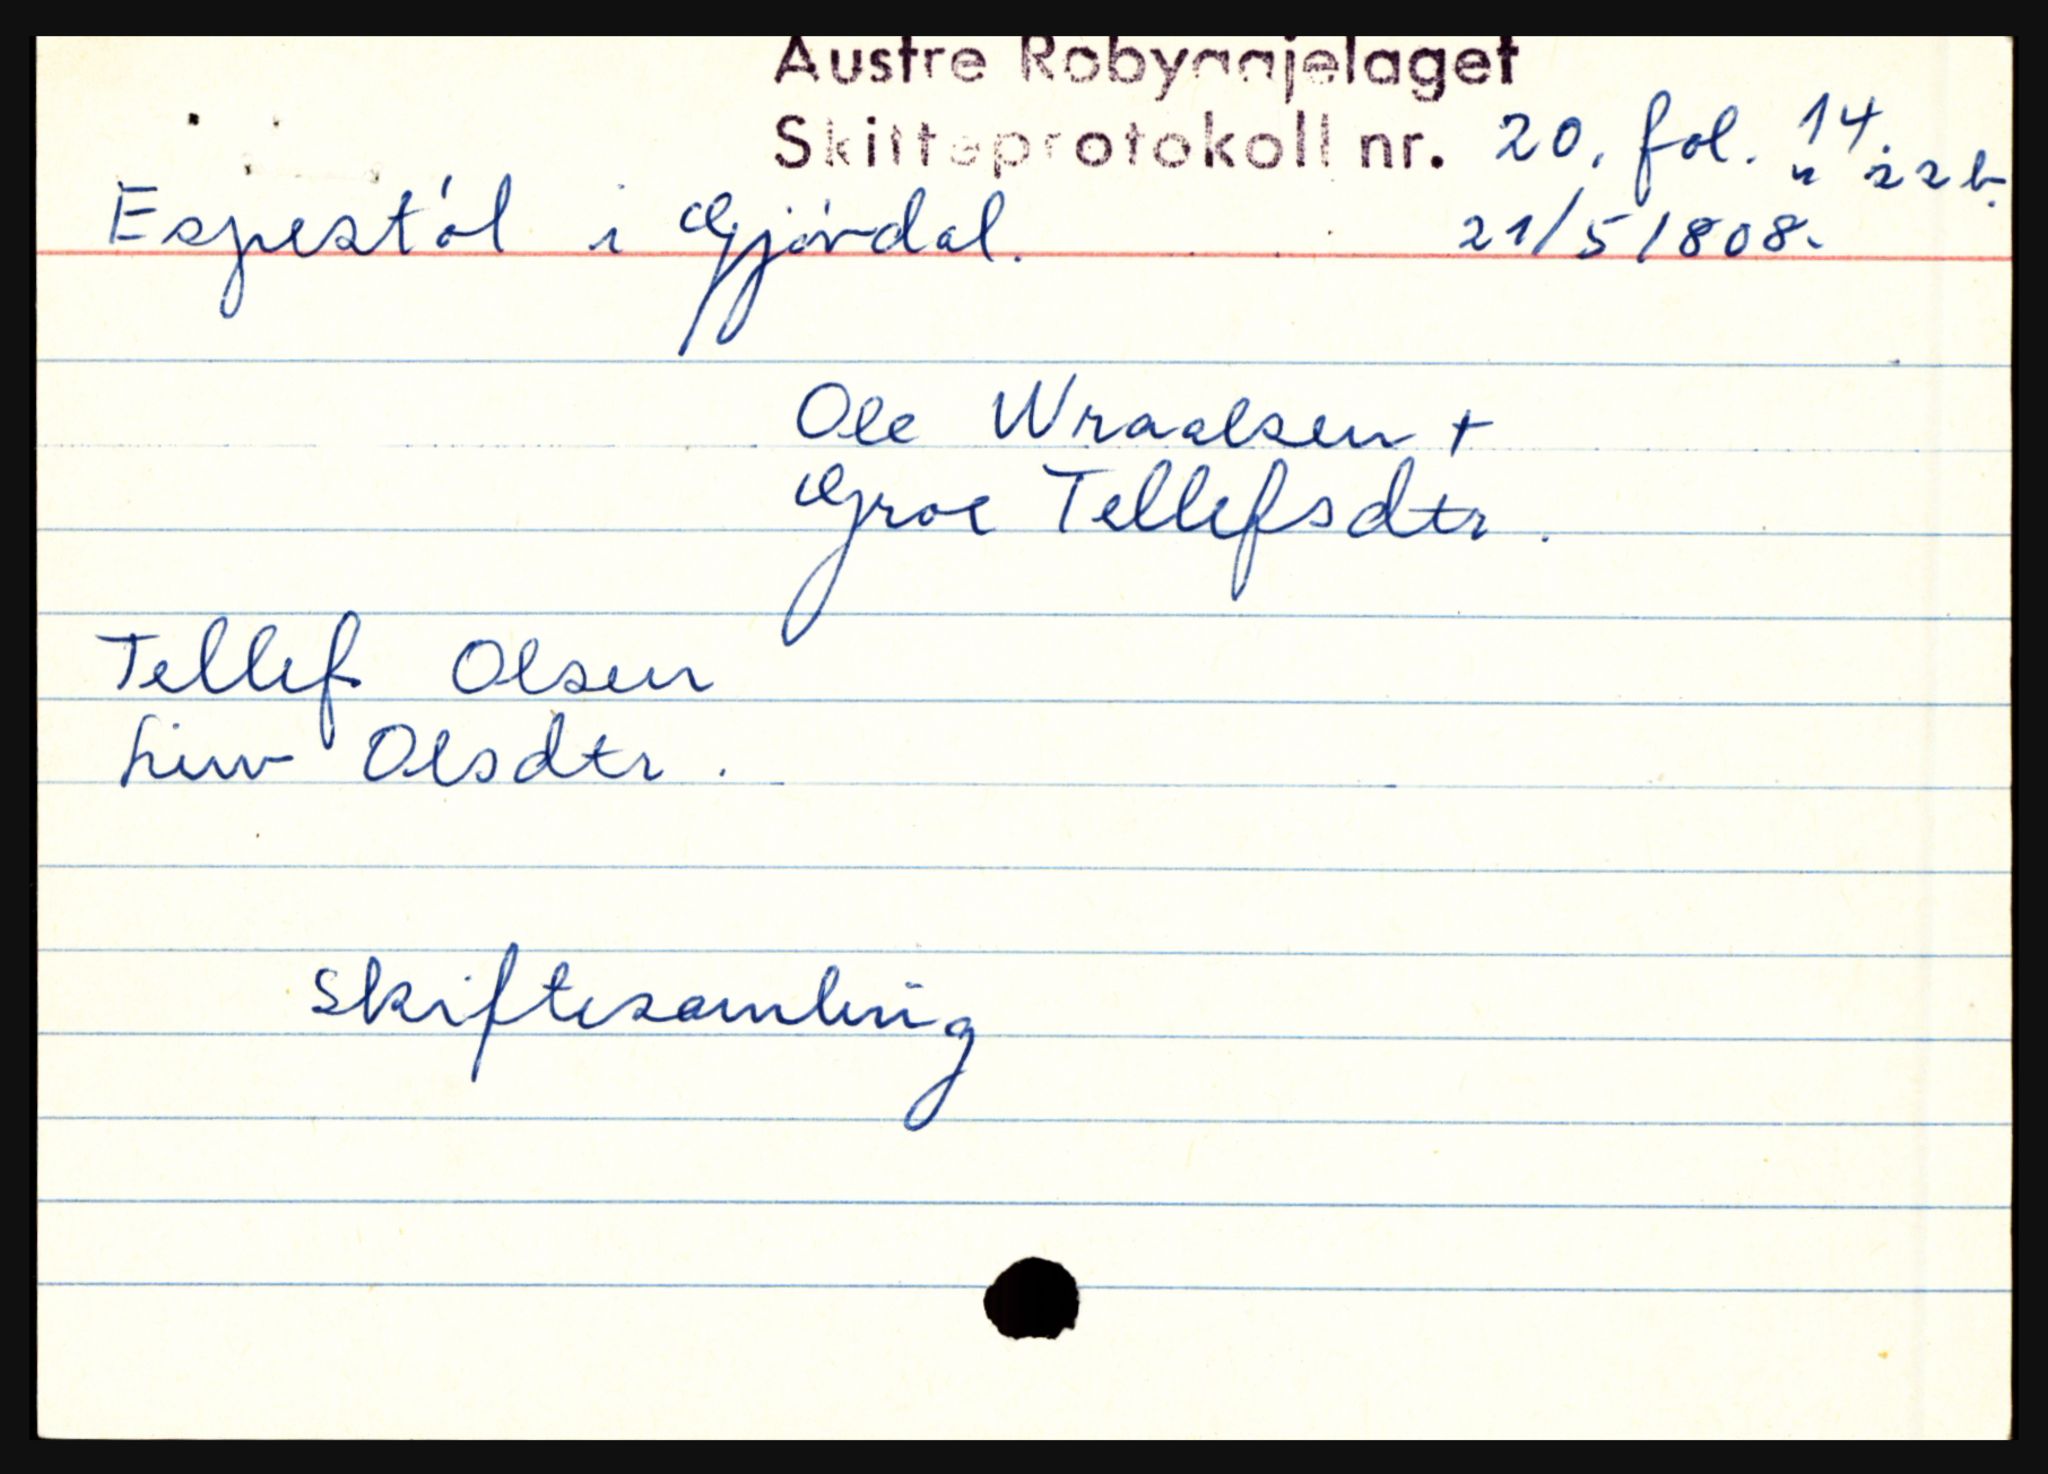 Austre Robyggjelaget
Skifteprotokoll nr. 20. fol. 14.
" 22b.
Espestøl i Gjövdal. 21/5 1808.
Ole Wraalsen +
Groe Tellefsdtr.
Tellef Olsen
Liuv Olsdtr.
Skiftesamling